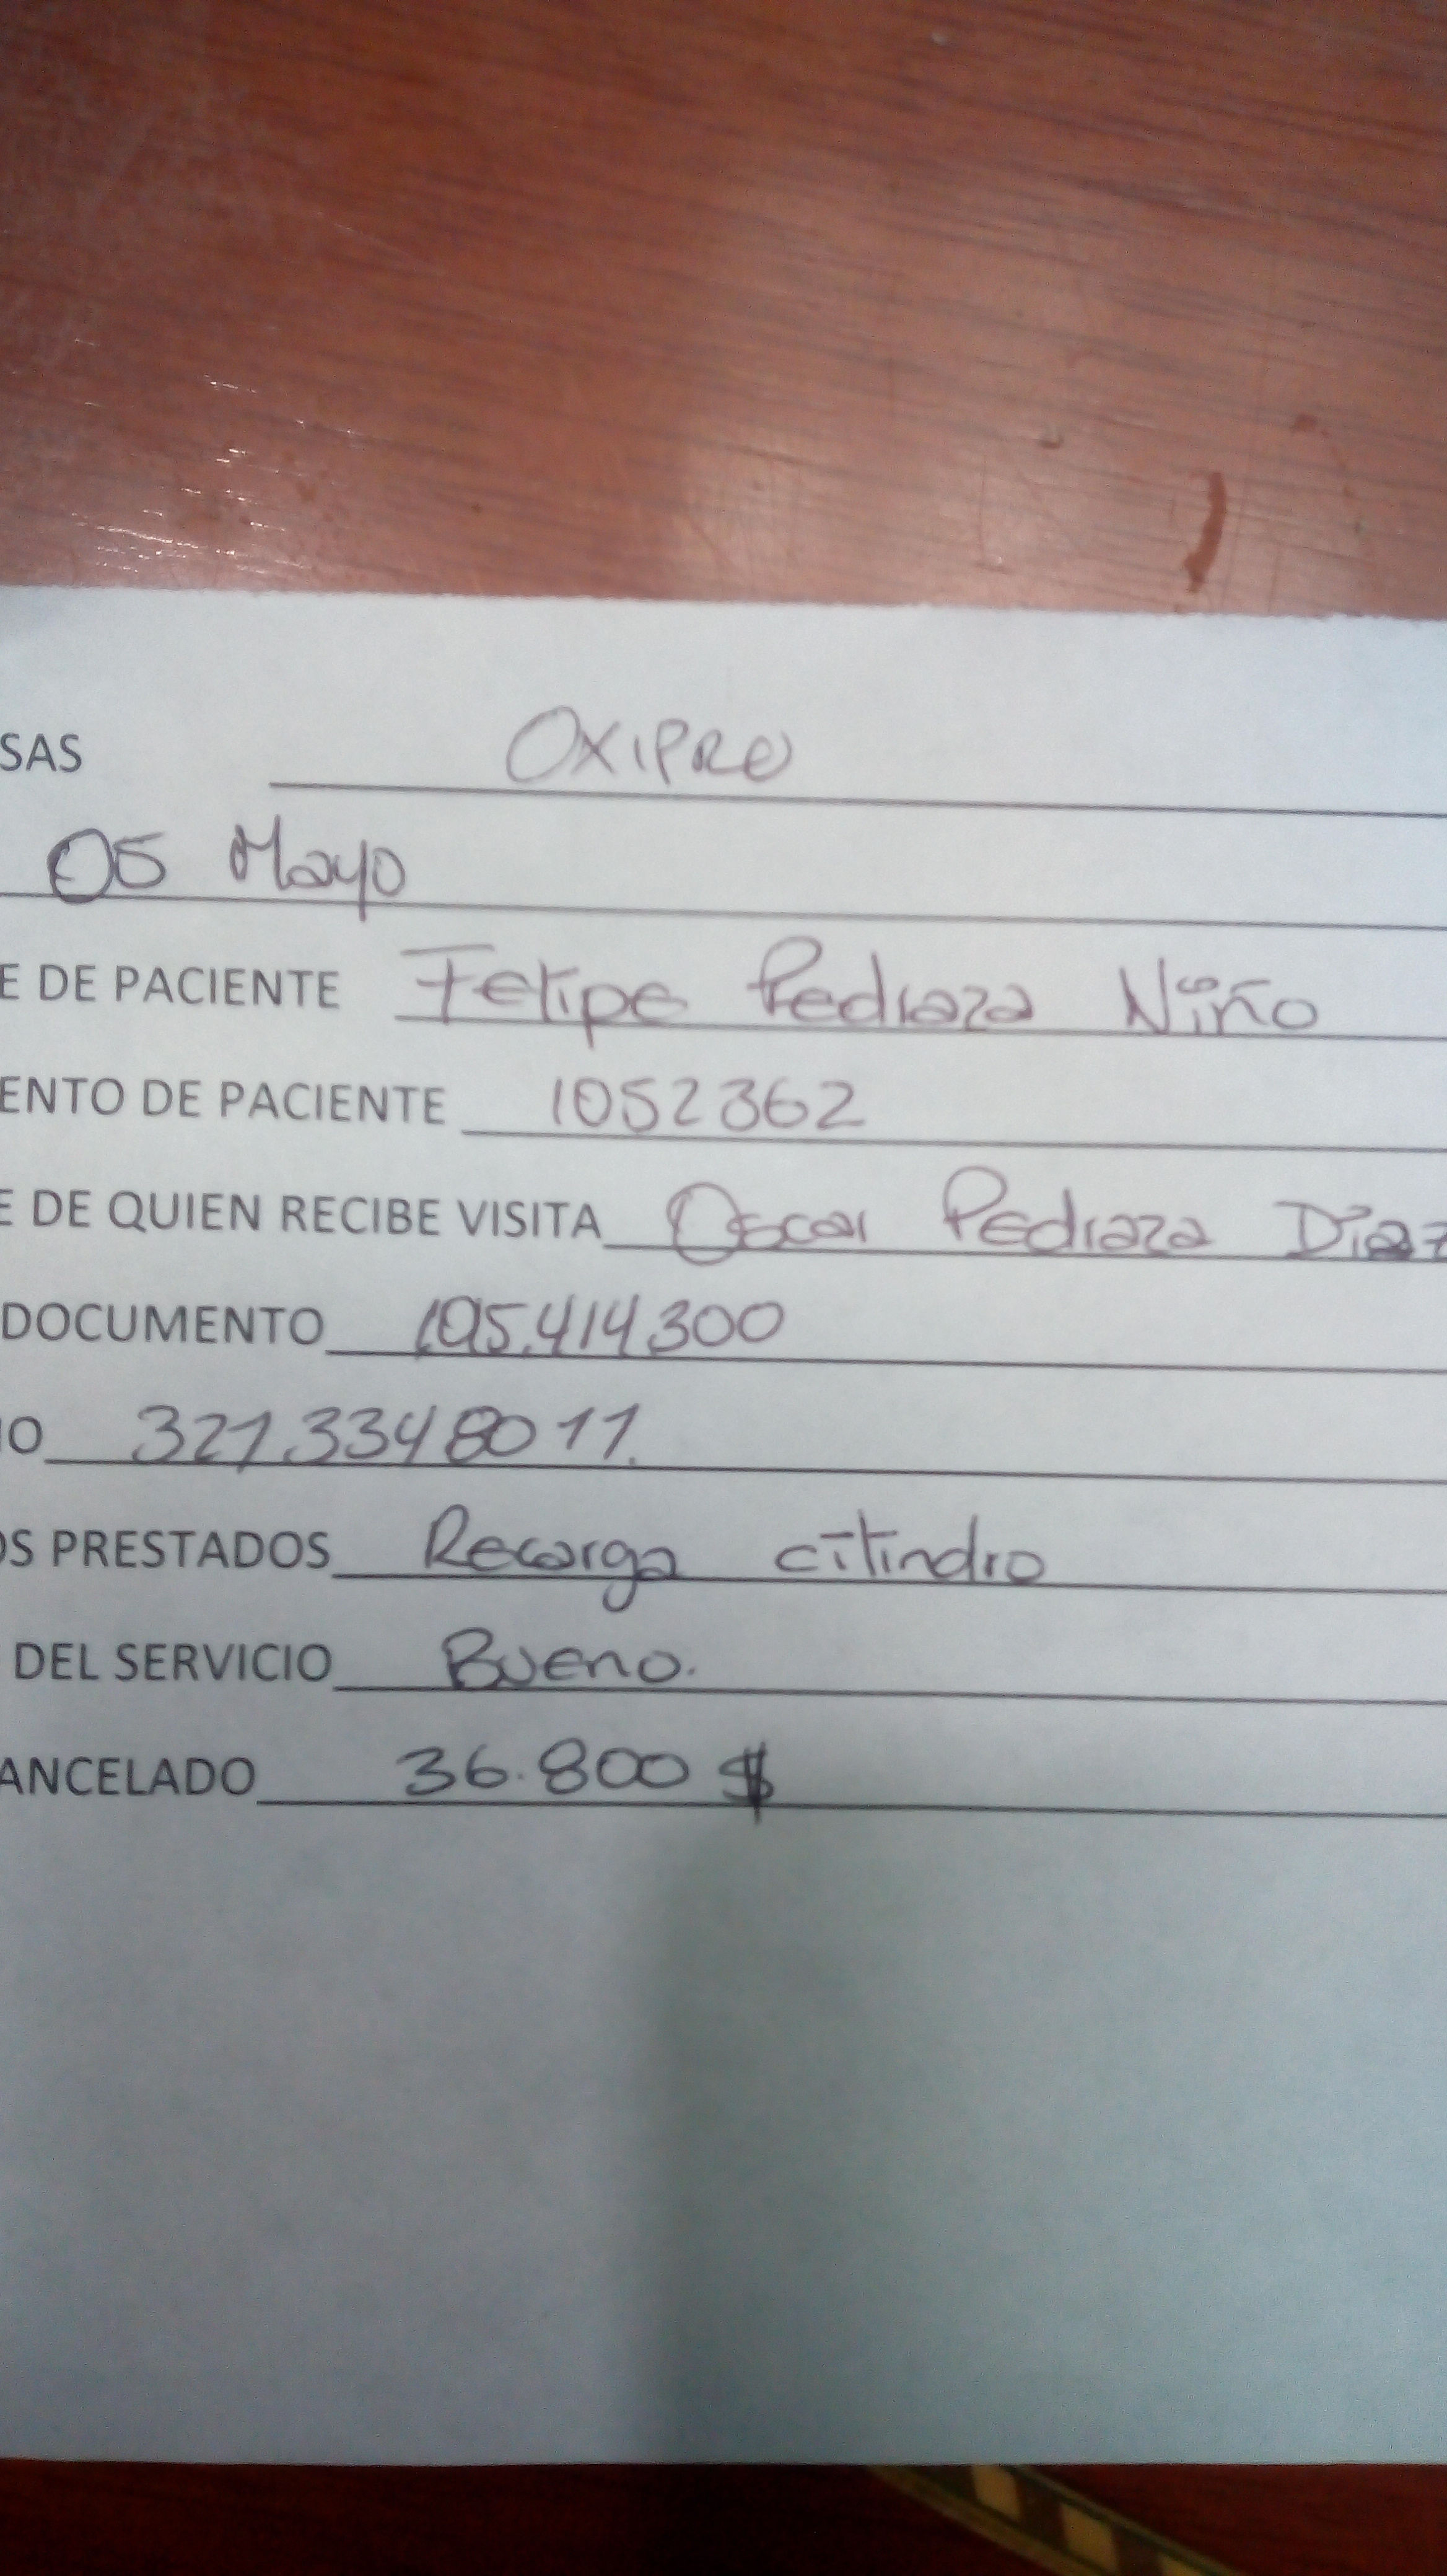 SAS OXIPRO
05 Mayo
E DE PACIENTE Felipe Pedraza Niño
ENTO DE PACIENTE 1052362
E DE QUIEN RECIBE VISITA Oscar Pedraza Diaz
DOCUMENTO 105.414300
IO 321.3348011.
OS PRESTADOS Recarga cilindro
DEL SERVICIO Bueno.
ANCELADO 36.800 $